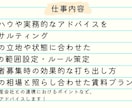 仕事内容
ハウや実務的なアドバイスを
サルティング
の立地や状態に合わせた
の範囲設定・ルール策定
者募集時の効果的な打ち出し方
の相場と照らし合わせた賃料プラン
会社との連携におけるポイントなど、
アドバイスします！